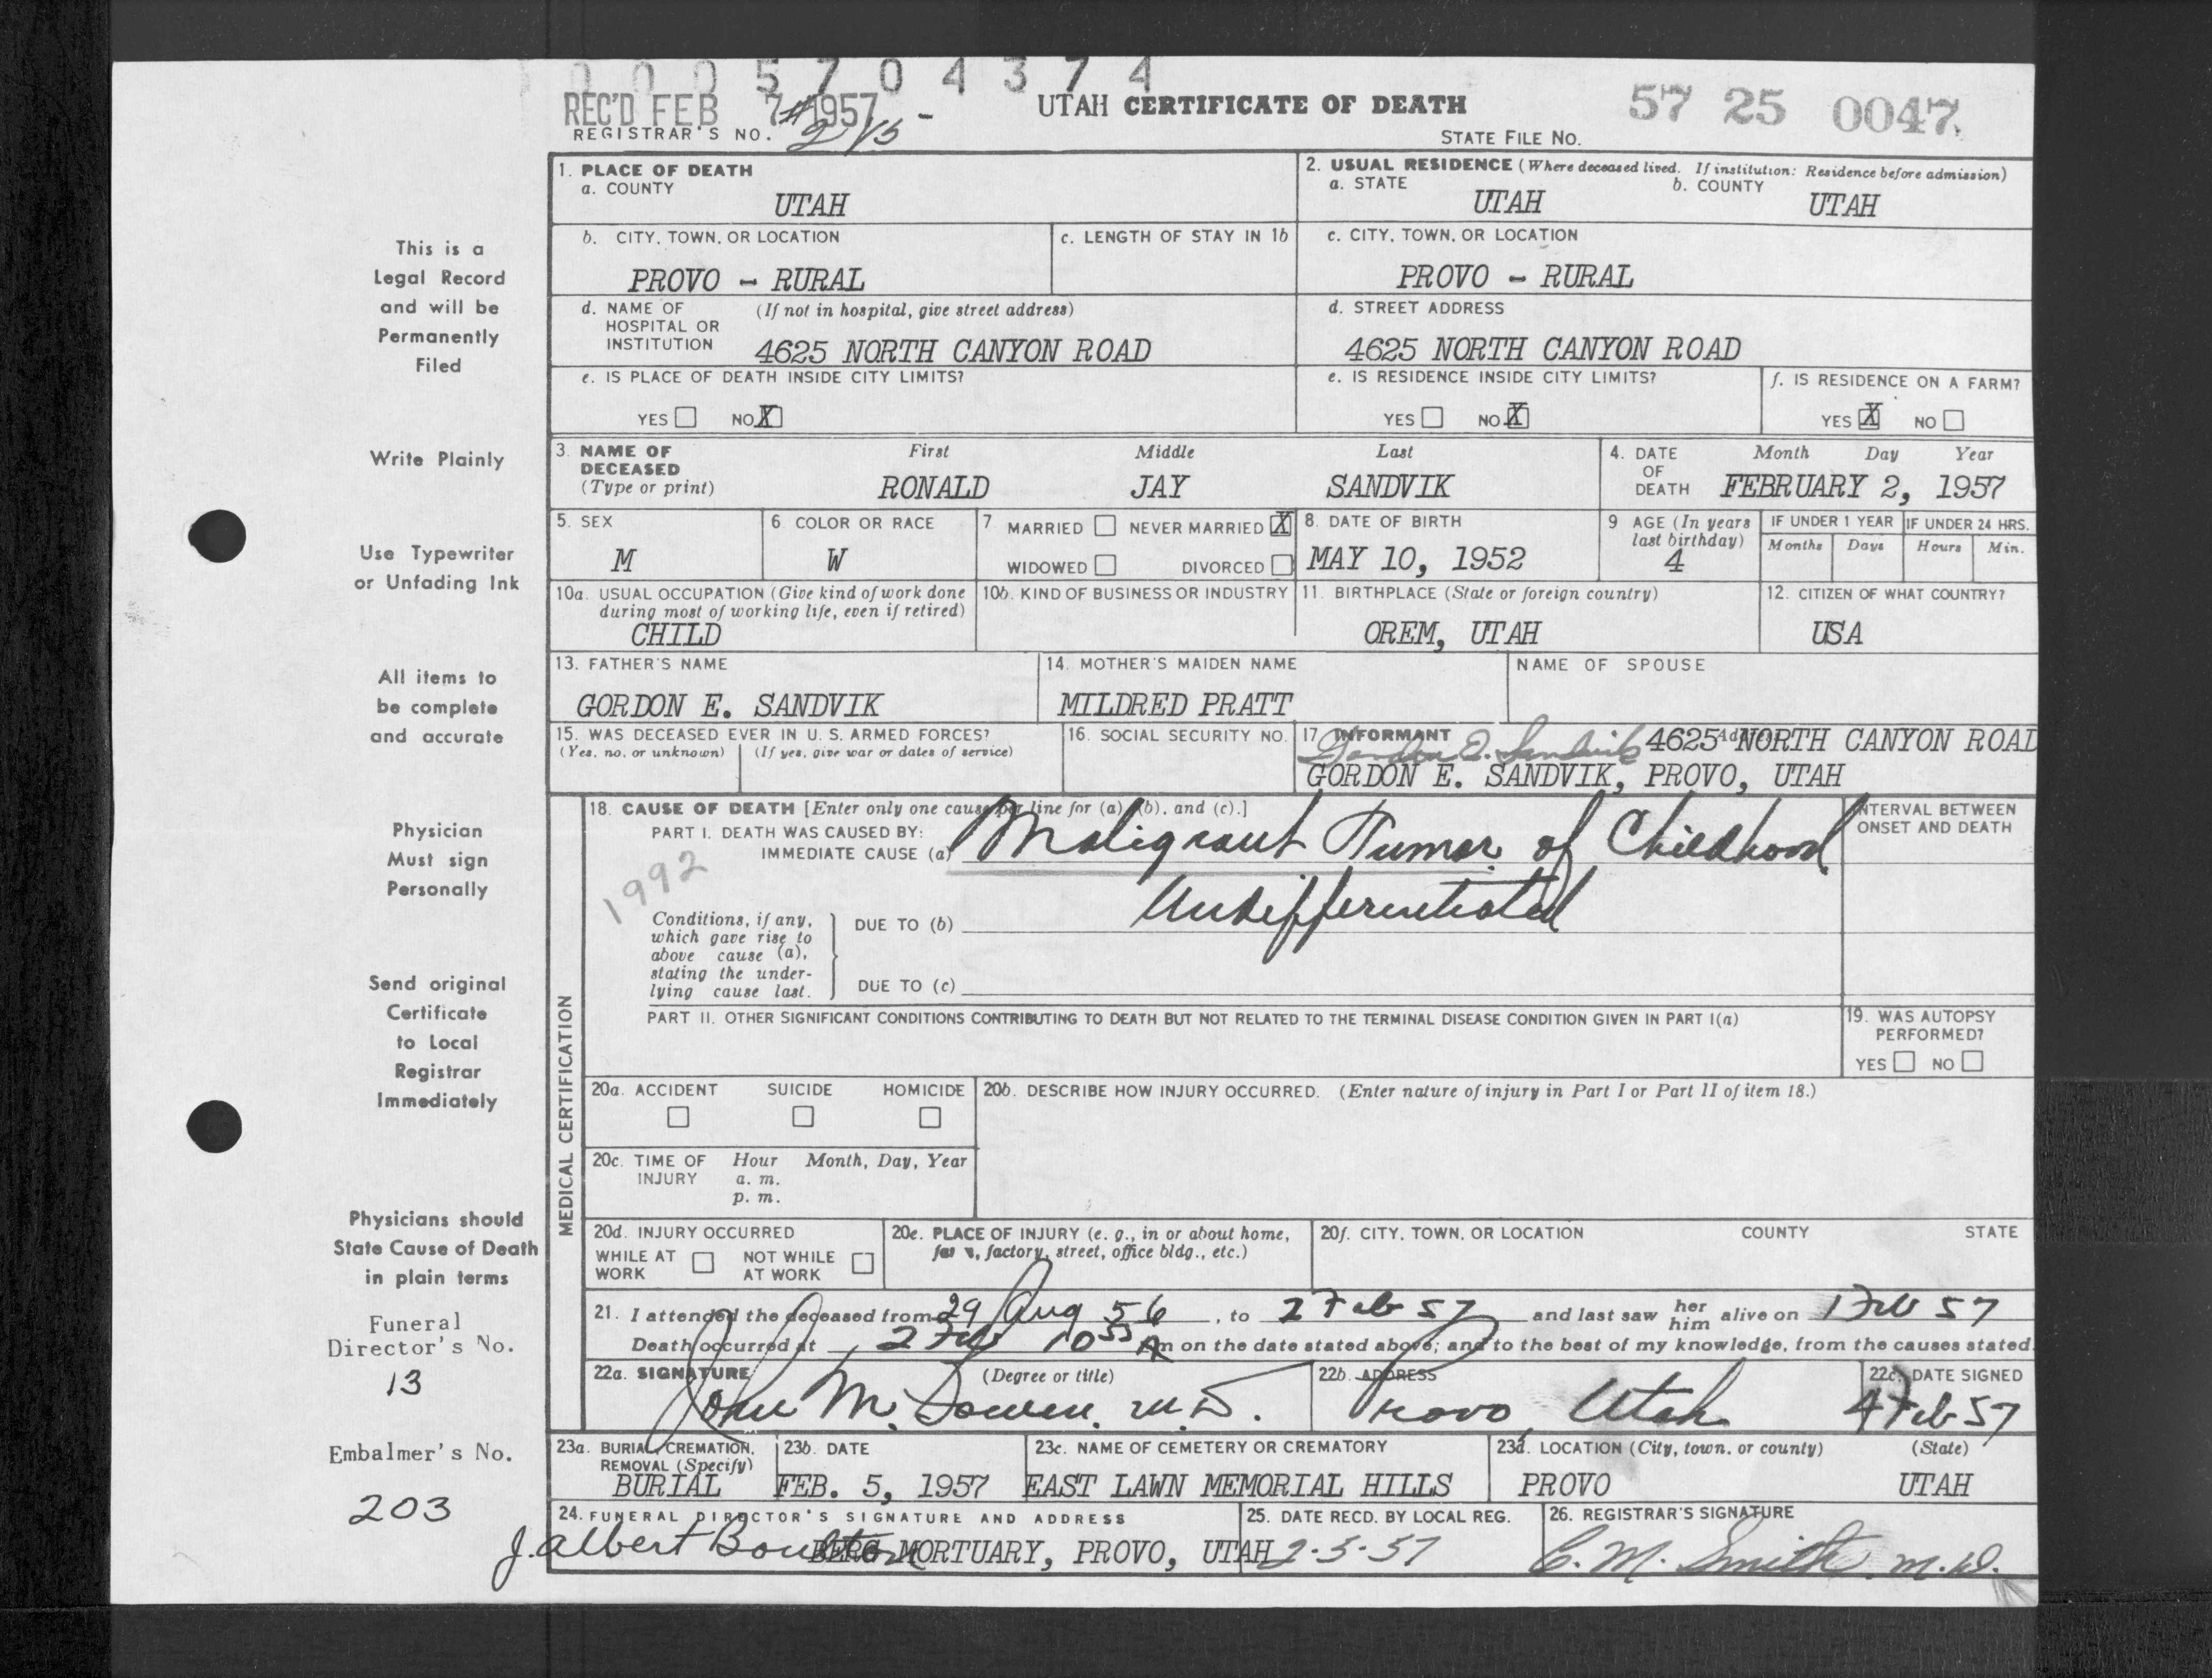 0 0 0 5 7 0 4 3 7 4
REC'D FEB 7 1957 -
UTAH CERTIFICATE OF DEATH
57 25 0047
REGISTRAR'S NO. # 215
STATE FILE NO.
1. PLACE OF DEATH
a. COUNTY
UTAH
2. USUAL RESIDENCE (Where deceased lived. If institution: Residence before admission)
a. STATE b. COUNTY
UTAH UTAH
b. CITY, TOWN, OR LOCATION
PROVO - RURAL
c. LENGTH OF STAY IN 1b
c. CITY, TOWN, OR LOCATION
PROVO - RURAL
d. NAME OF (If not in hospital, give street address)
HOSPITAL OR
INSTITUTION 4625 NORTH CANYON ROAD
d. STREET ADDRESS
4625 NORTH CANYON ROAD
e. IS PLACE OF DEATH INSIDE CITY LIMITS?
YES NO X
e. IS RESIDENCE INSIDE CITY LIMITS?
YES NO X
f. IS RESIDENCE ON A FARM?
YES X NO
3. NAME OF First Middle Last
DECEASED
(Type or print) RONALD JAY SANDVIK
4. DATE Month Day Year
OF
DEATH FEBRUARY 2, 1957
5. SEX
M
6. COLOR OR RACE
W
7 MARRIED NEVER MARRIED X
WIDOWED DIVORCED
8. DATE OF BIRTH
MAY 10, 1952
9 AGE (In years
last birthday)
4
IF UNDER 1 YEAR
Months Days
IF UNDER 24 HRS.
Hours Min.
10a. USUAL OCCUPATION (Give kind of work done
during most of working life, even if retired)
CHILD
10b. KIND OF BUSINESS OR INDUSTRY
11. BIRTHPLACE (State or foreign country)
OREM, UTAH
12. CITIZEN OF WHAT COUNTRY?
USA
13. FATHER'S NAME
GORDON E. SANDVIK
14. MOTHER'S MAIDEN NAME
MILDRED PRATT
NAME OF SPOUSE
15. WAS DECEASED EVER IN U. S. ARMED FORCES?
(Yes, no, or unknown) (If yes, give war or dates of service)
16. SOCIAL SECURITY NO.
17 INFORMANT
Gordon E. Sandvik 4625 NORTH CANYON ROAD
GORDON E. SANDVIK, PROVO, UTAH
MEDICAL CERTIFICATION
18. CAUSE OF DEATH [Enter only one cause per line for (a), (b), and (c).]
PART I. DEATH WAS CAUSED BY:
IMMEDIATE CAUSE (a) Malignant Tumor of Childhood
Undifferentiated
1992
Conditions, if any,
which gave rise to
above cause (a),
stating the under-
lying cause last.
DUE TO (b)
DUE TO (c)
INTERVAL BETWEEN
ONSET AND DEATH
PART II. OTHER SIGNIFICANT CONDITIONS CONTRIBUTING TO DEATH BUT NOT RELATED TO THE TERMINAL DISEASE CONDITION GIVEN IN PART I(a)
19. WAS AUTOPSY
PERFORMED?
YES NO
20a. ACCIDENT SUICIDE HOMICIDE
20b. DESCRIBE HOW INJURY OCCURRED. (Enter nature of injury in Part I or Part II of item 18.)
20c. TIME OF Hour Month, Day, Year
INJURY a. m.
p. m.
20d. INJURY OCCURRED
WHILE AT NOT WHILE
WORK AT WORK
20e. PLACE OF INJURY (e. g., in or about home,
factory, street, office bldg., etc.)
20f. CITY, TOWN, OR LOCATION COUNTY STATE
21. I attended the deceased from 29 Aug 56, to 2 Feb 57 and last saw her him alive on 1 Feb 57
Death occurred at 2 Feb 10 53 A m on the date stated above; and to the best of my knowledge, from the causes stated.
22a. SIGNATURE (Degree or title)
John M. Bowen. M.D.
22b. ADDRESS
Provo Utah
22c. DATE SIGNED
4 Feb 57
23a. BURIAL, CREMATION,
REMOVAL (Specify)
BURIAL
23b. DATE
FEB. 5, 1957
23c. NAME OF CEMETERY OR CREMATORY
EAST LAWN MEMORIAL HILLS
23d. LOCATION (City, town, or county) (State)
PROVO UTAH
24. FUNERAL DIRECTOR'S SIGNATURE AND ADDRESS
J. Albert Boulton BERG MORTUARY, PROVO, UTAH
25. DATE RECD. BY LOCAL REG.
2-5-57
26. REGISTRAR'S SIGNATURE
C. M. Smith M.D.
This is a
Legal Record
and will be
Permanently
Filed
Write Plainly
Use Typewriter
or Unfading Ink
All items to
be complete
and accurate
Physician
Must sign
Personally
Send original
Certificate
to Local
Registrar
Immediately
Physicians should
State Cause of Death
in plain terms
Funeral
Director's No.
13
Embalmer's No.
203